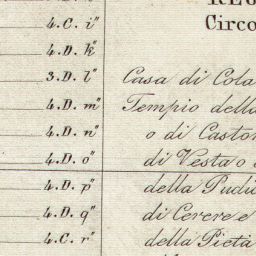 4.C. i"
Circo
4.D. k"
3.D. l" Casa di Cola
4.D. m" Tempio della
4.D. n" o di Castor
4.D. o" di Vesta o
4.D. p" della Pudi
4.D. q" di Cerere e
4.C. r" della Pietà